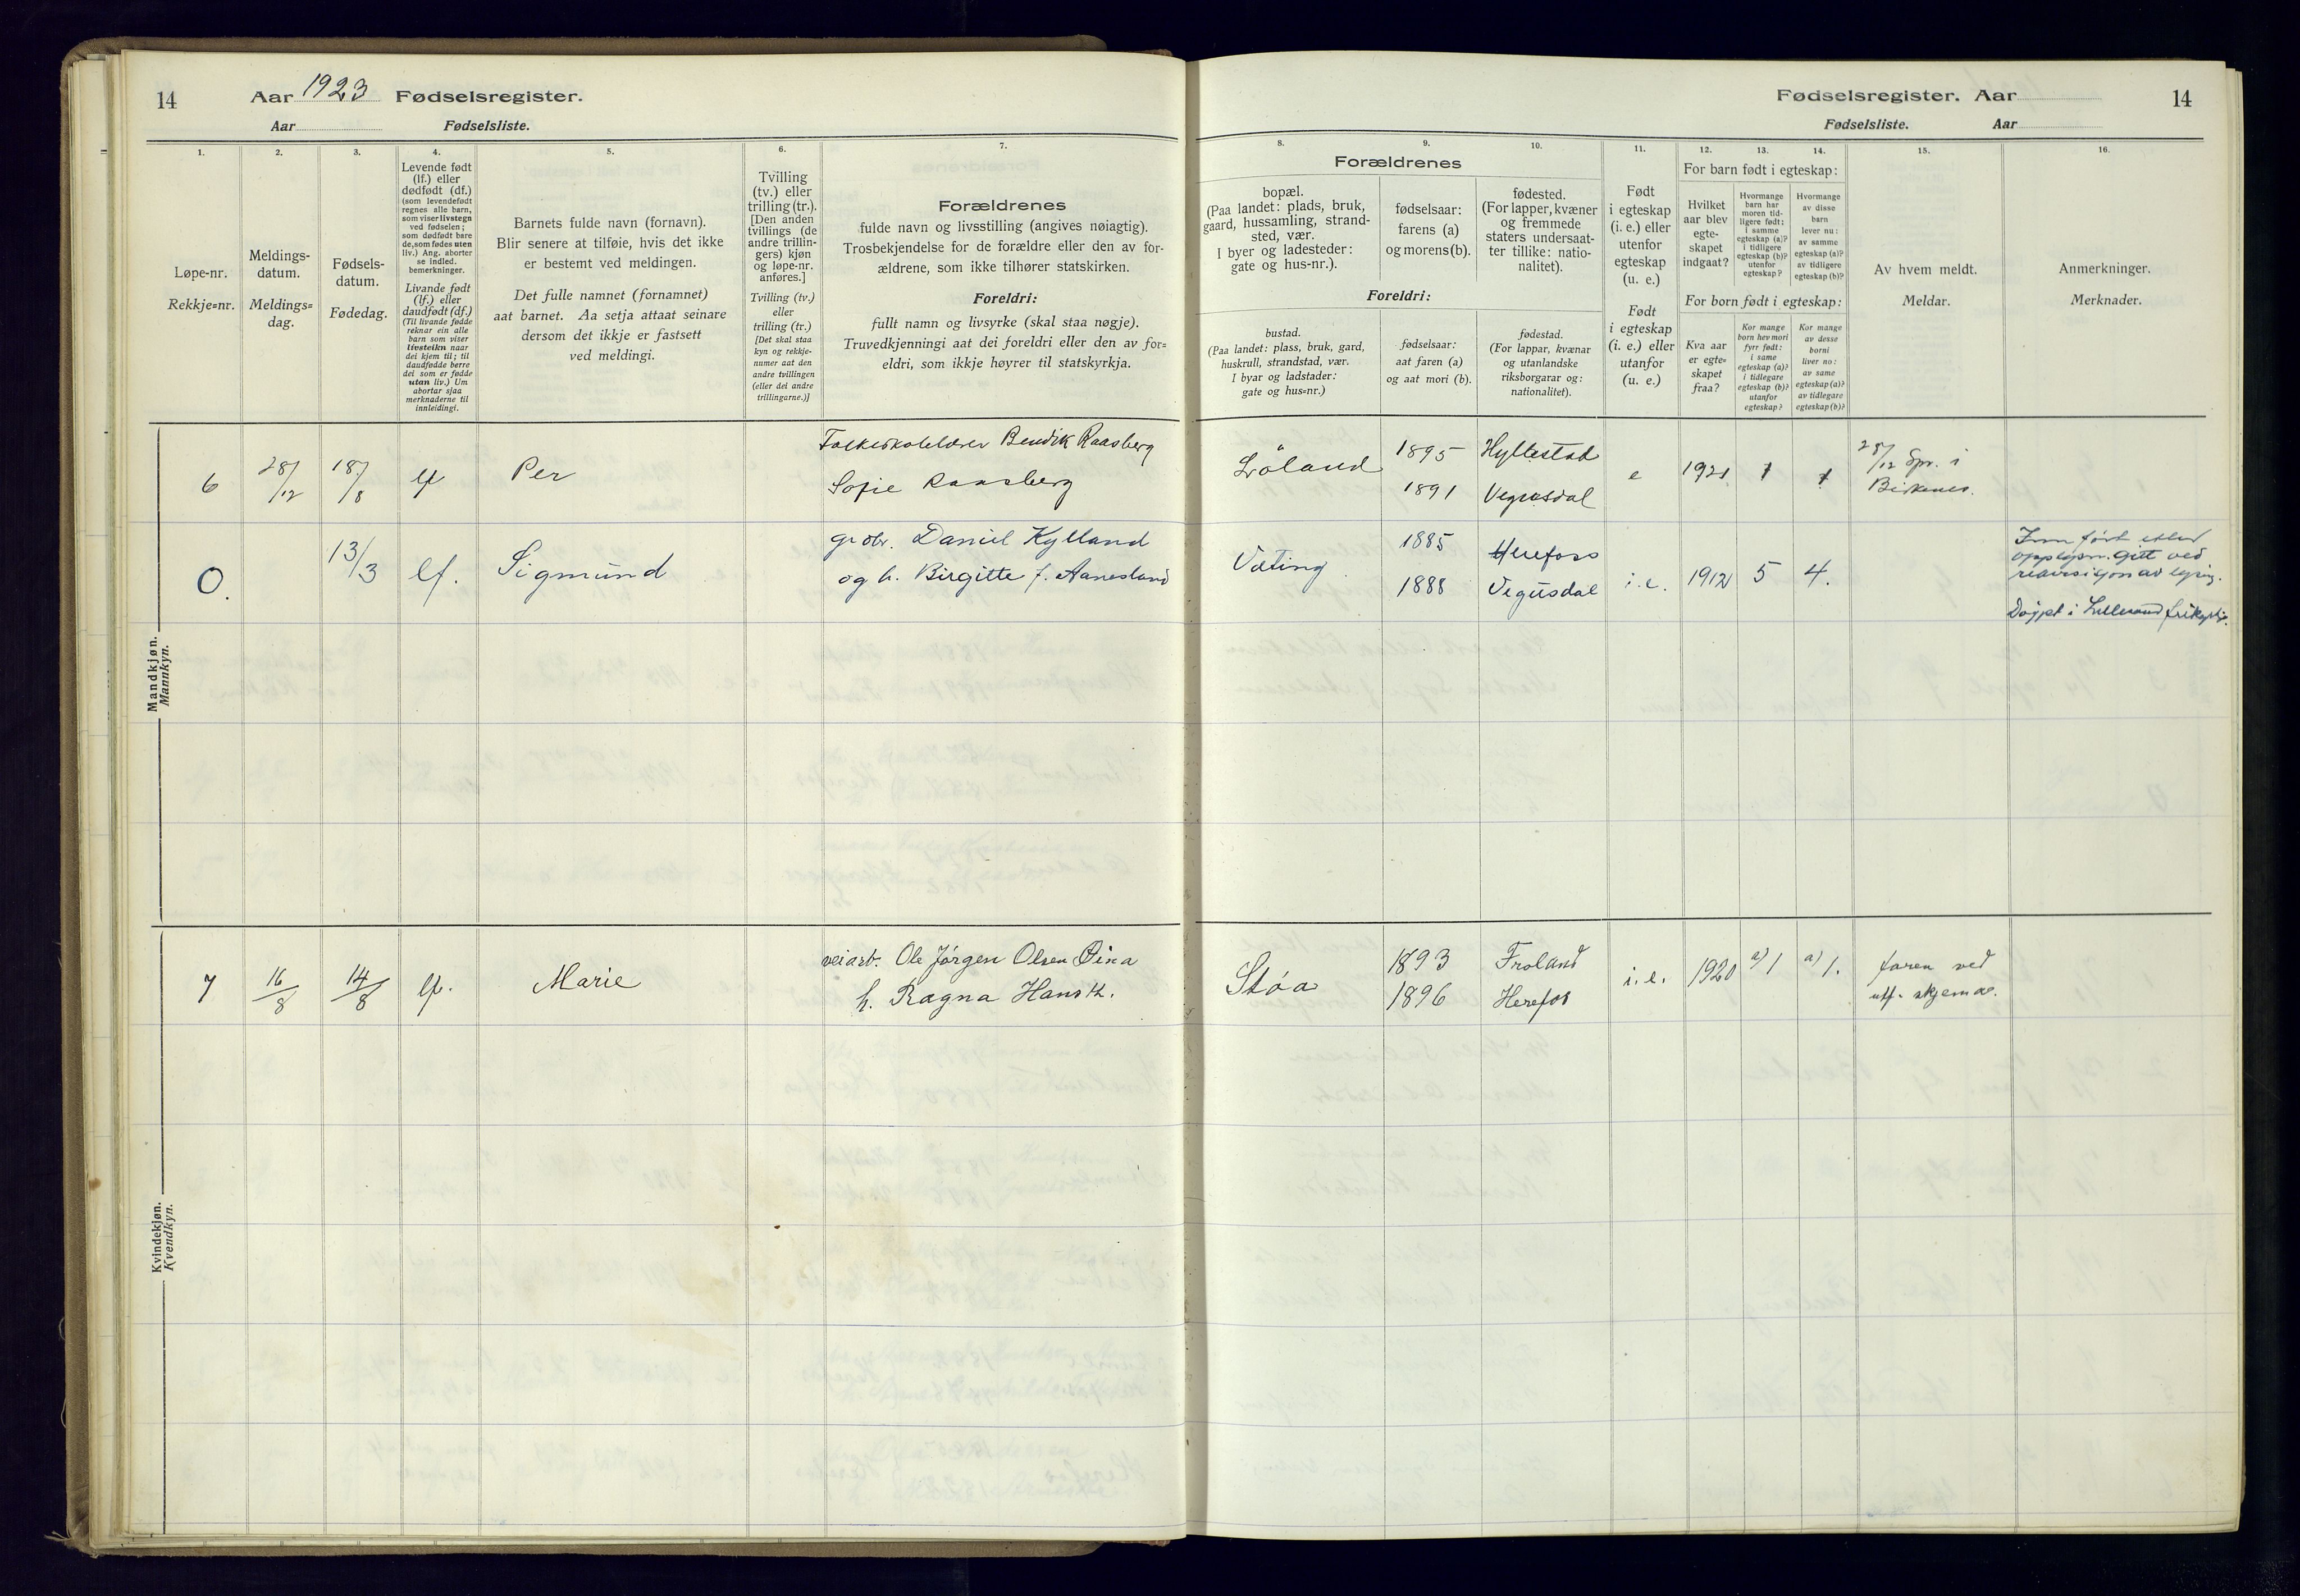 14
Aar 1923 Fødselsregister.
Aar Fødselsliste.
1.
2.
3.
4.
5.
6.
7.
Løpe-nr.
Rekkje=nr.
Meldings-
datum.
Meldings=
dag.
Fødsels-
datum.
Fødedag.
Levende født
(lf.) eller
dødfødt (df.)
(som levendefødt
regnes alle barn,
som viser livstegn
ved fødselen;
som dødfødt bare
de, som fødes uten
liv.) Ang. aborter
se indled.
bemerkninger.
Livande født
(lf.) eller
daudfødt (df.)
(Til livande fødde
reknar ein alle
barn som viser
livsteikn naar
dei kjem til; til
daudfødde berre
dei som er fødde
utan liv.) Um
abortar sjaa
merknaderne til
innleidingi.
Barnets fulde navn (fornavn).
Blir senere at tilføie, hvis det ikke
er bestemt ved meldingen.
Det fulle namnet (fornamnet)
aat barnet. Aa setja attaat seinare
dersom det ikkje er fastsett
ved meldingi.
Tvilling
(tv.) eller
trilling (tr.).
[Den anden
tvillings (de
andre trillin-
gers) kjøn
og løpe-nr.
anføres.]
Tvilling (tv.)
eller
trilling (tr.)
[Det skal staa
kyn og rekkje-
numer aat den
andre tvillingen
(eller dei andre
trillingarne.)]
Forældrenes
fulde navn og livsstilling (angives nøiagtig).
Trosbekjendelse for de forældre eller den av for-
ældrene, som ikke tilhører statskirken.
Foreldri:
fullt namn og livsyrke (skal staa nøgje).
Truvedkjenningi aat dei foreldri eller den av for=
eldri, som ikkje høyrer til statskyrkja.
Mandkjøn.
Mannkyn.
6 28/12 18/8 lf Per
Folkeskolelærer Bendik Raasberg
Sofie Raasberg
0. 13/3 lf. Sigmund
grbr. Daniel Kylland
og h. Birgitte f. Aanesland
Kvindekjøn.
Kvendkyn.
7 16/8 14/8 lf. Marie
veiarb. Ole Jørgen Olsen Øina
h. Ragna Hansdt.
Fødselsregister. Aar 14
Fødselsliste. Aar
8.
9.
10.
11.
12.
13.
14.
15.
16.
Forældrenes
bopæl.
(Paa landet: plads, bruk,
gaard, hussamling, strand-
sted, vær.
I byer og ladesteder:
gate og hus-nr.).
fødselsaar:
farens (a)
og morens (b).
fødested.
(For lapper, kvæner
og fremmede
staters undersaat-
ter tillike: natio-
nalitet).
Foreldri:
bustad.
(Paa landet: plass, bruk, gard,
huskrull, strandstad, vær.
I byar og ladstader:
gate og hus=nr.)
fødselsaar:
aat faren (a)
og aat mori (b).
fødestad.
(For lappar, kvænar
og utanlandske
riksborgarar og:
nationalitet).
Født
i egteskap
(i. e.) eller
utenfor
egteskap
(u. e.)
Født
i egteskap
(i. e.) eller
utanfor
(u. e.)
For barn født i egteskap:
Hvilket
aar blev
egte-
skapet
indgaat?
Hvormange
barn har
moren tid-
ligere født:
i samme
egteskap (a)?
i tidligere
egteskap (b)?
utenfor
egteskap?
Hvormange
av disse
barn
lever nu:
av samme
egteskap (a)?
av tidligere
egteskap (b)?
For born født i egteskap:
Kva aar
er egte=
skapet
fraa?
Kor mange
born hev mori
fyrr født:
i same
egteskap (a)?
i tidlegare
egteskap (b)?
utanfor
egteskap?
Kor mange
av desse
borni
liver no:
av same
egteskap (a)?
av tidlegare
egteskap (b)?
Av hvem meldt.
Meldar.
Anmerkninger.
Merknader.
Løland 1895 Hyllestad e 1921 1 1 28/12 Spr. i
1891 Vegusdal Birkenes.
Væting 1885 Herefoss
1888 Vegusdal i.e. 1912 5 4.
Innført etter
opplysn. gitt ved
revisisjon av lysing.
Døypt i Lillesand frikyrkje.
Støa 1893 Froland i.e. 1920 a) 1 a) 1. faren ved
1896 Herefos utf. skjema.